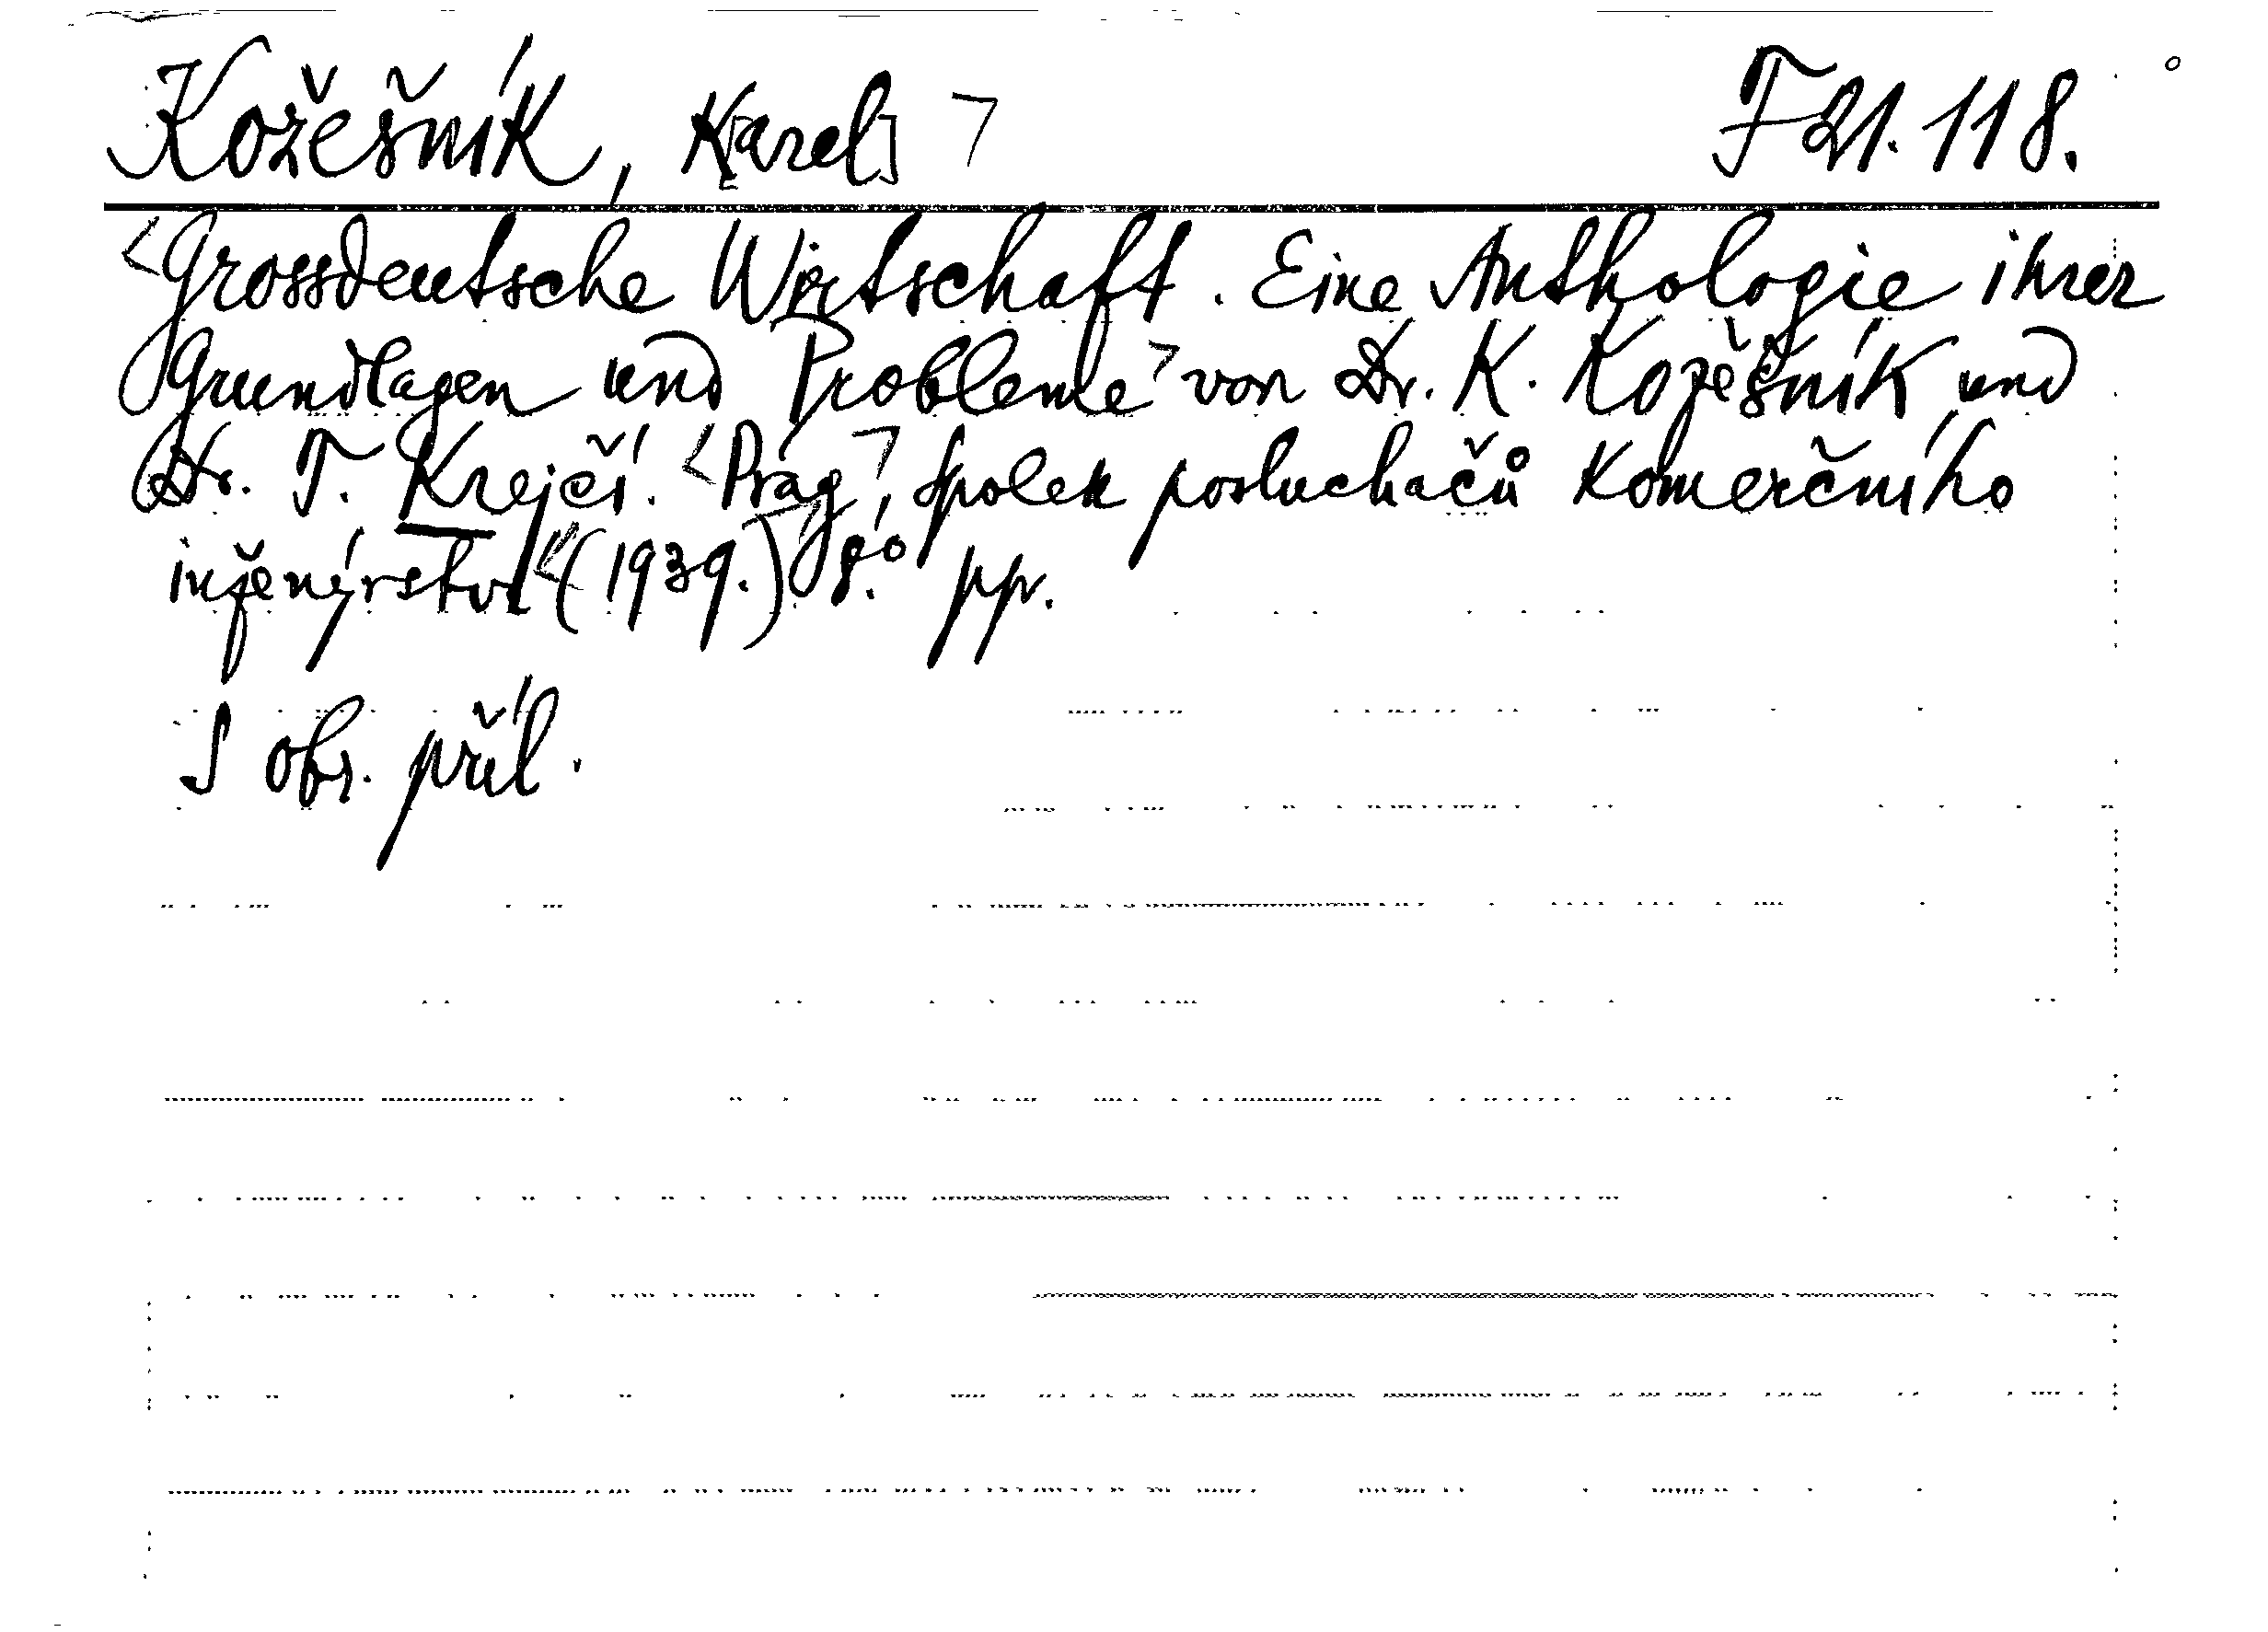 Kožešník, K[arel] F 21.118.
Grossdeutsche Wirtschaft. Eine Anthologie ihrer
Grundlagen und Probleme von Dr. K. Kožešník und
Dr. T. Krejčí. Prag, Spolek posluchačů komerčního
inženýrství (1939.) 8.° pp.
S obr. příl.